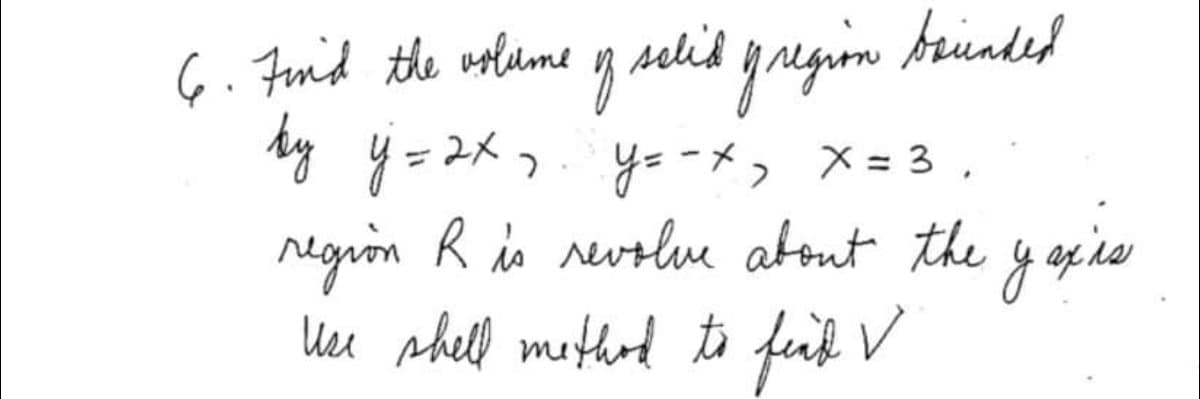 6. Find the volume of solid of region bounded
by y = 2x, y = -x, x = 3.
region R is revolve about the y axis
Use shell method to find V